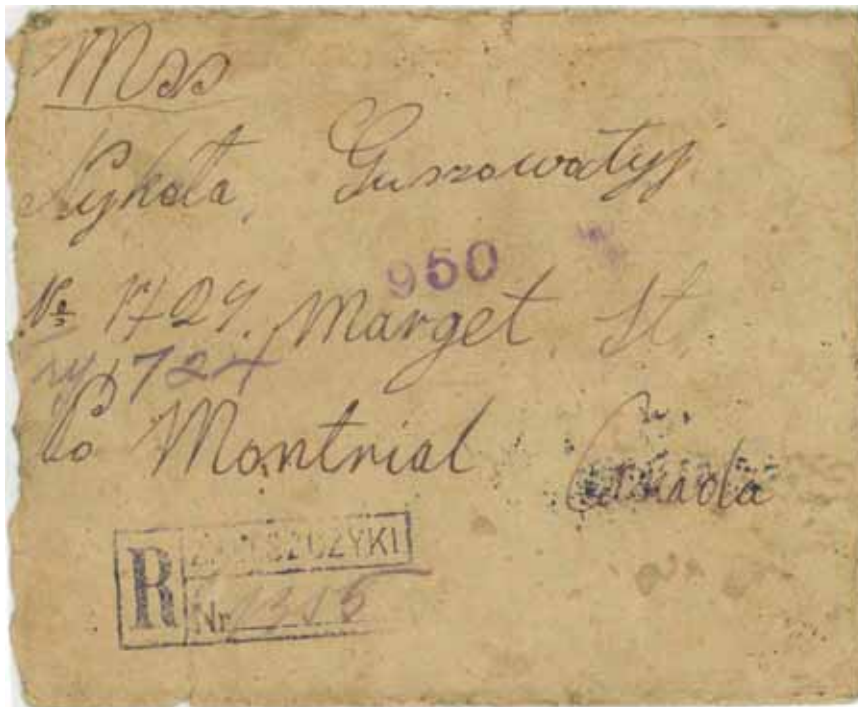 Mss
Nykola, Guszowatyj
950
№ 1724. Marget. St.
1724
Po Montrial Canada
R
Nr 1315